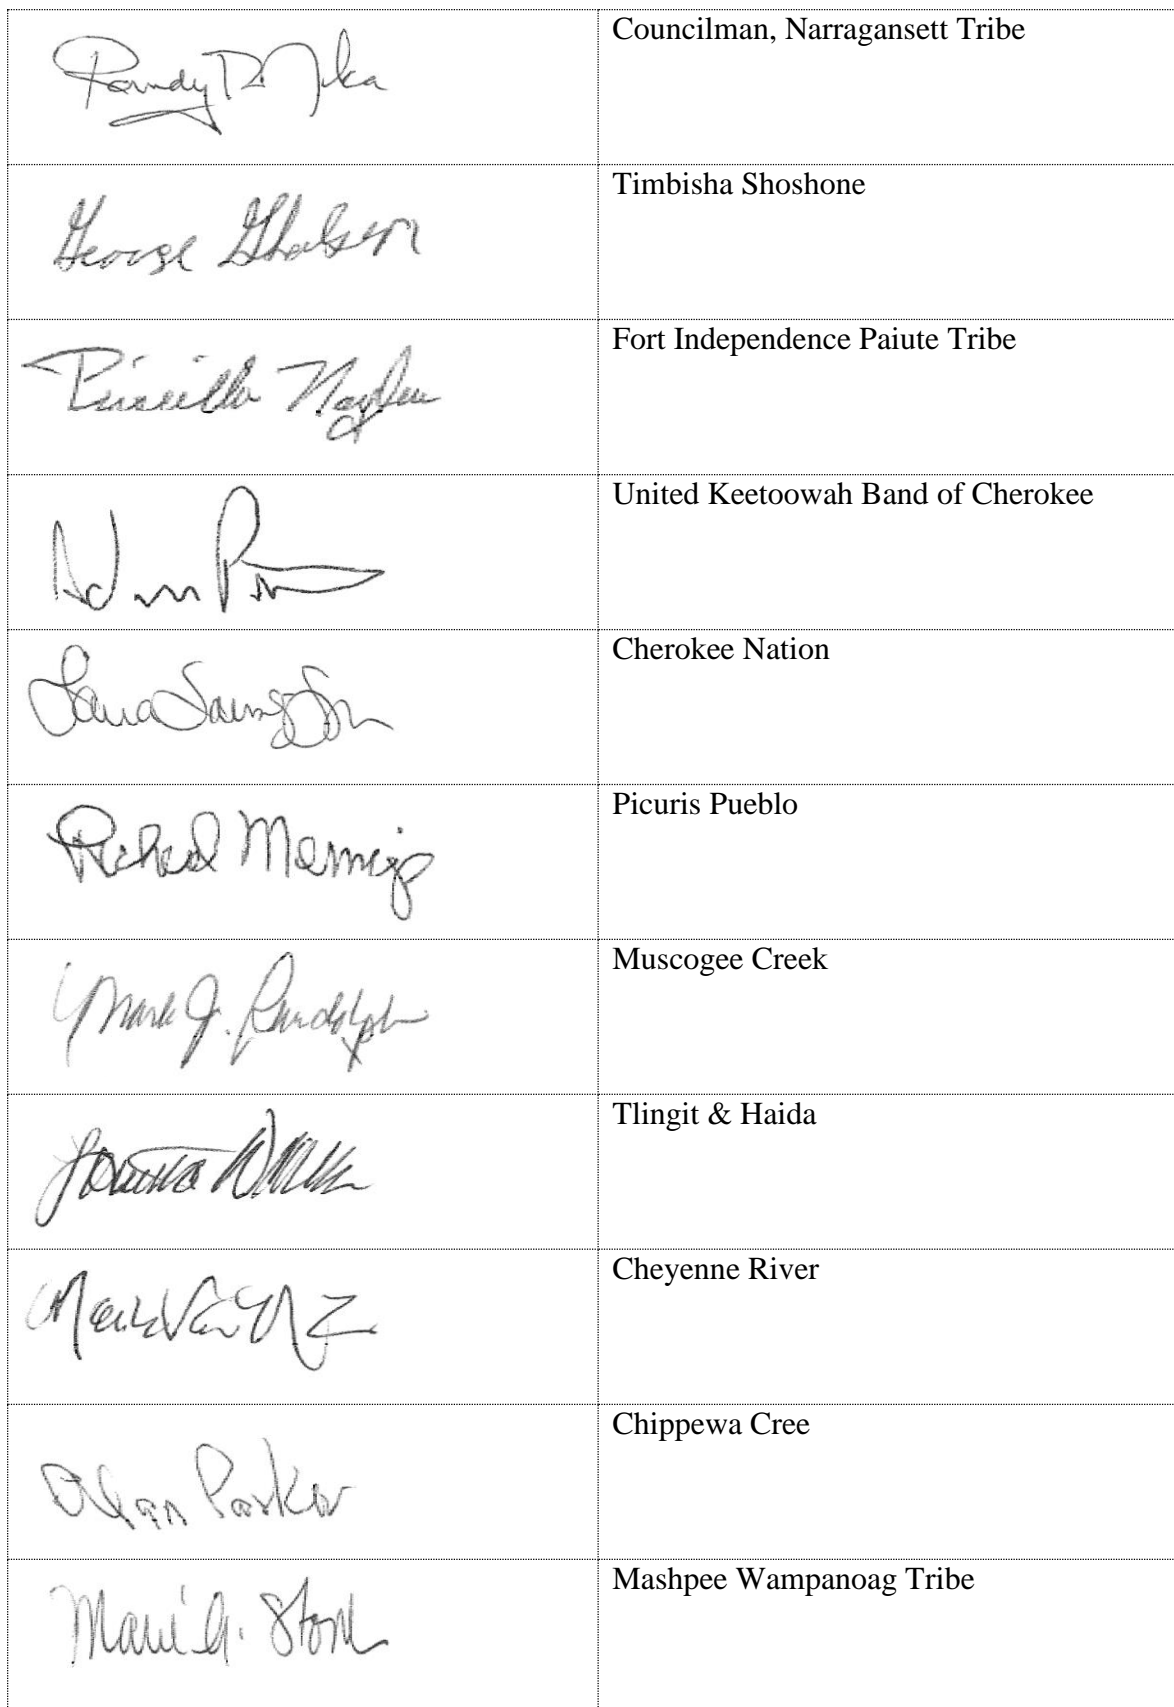 Randy R. Noka
Councilman, Narragansett Tribe
George Gholson
Timbisha Shoshone
Priscilla Naylor
Fort Independence Paiute Tribe
United Keetoowah Band of Cherokee
Cherokee Nation
Richard Mermejo
Picuris Pueblo
Mark J. Randolph
Muscogee Creek
Tlingit & Haida
Cheyenne River
Alan Parker
Chippewa Cree
Marie A. Stone
Mashpee Wampanoag Tribe